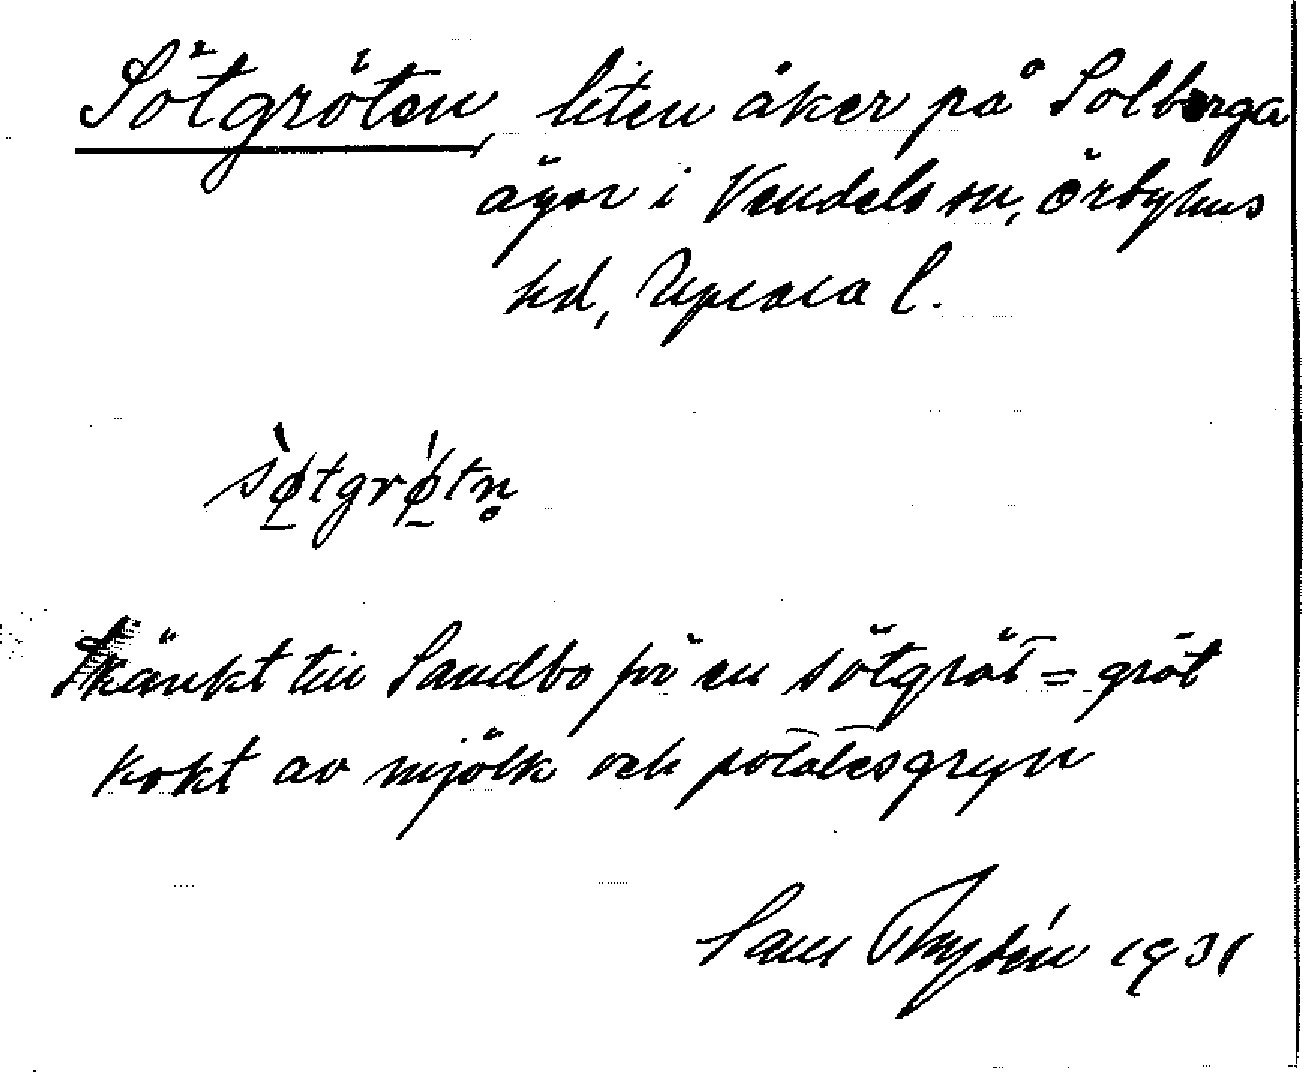 Sötgröten, liten åker på Solberga
ägor i Vendels sn, Örbyhus
hd, Uppsala l.
sø̠̀tgrǿ̠tn̥
Skänkt till Sandbo för en sötgröt = gröt
kokt av mjölk och potatesgryn
1931